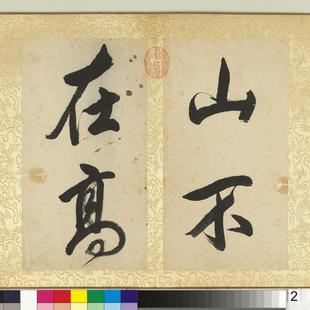 山不
在高
2